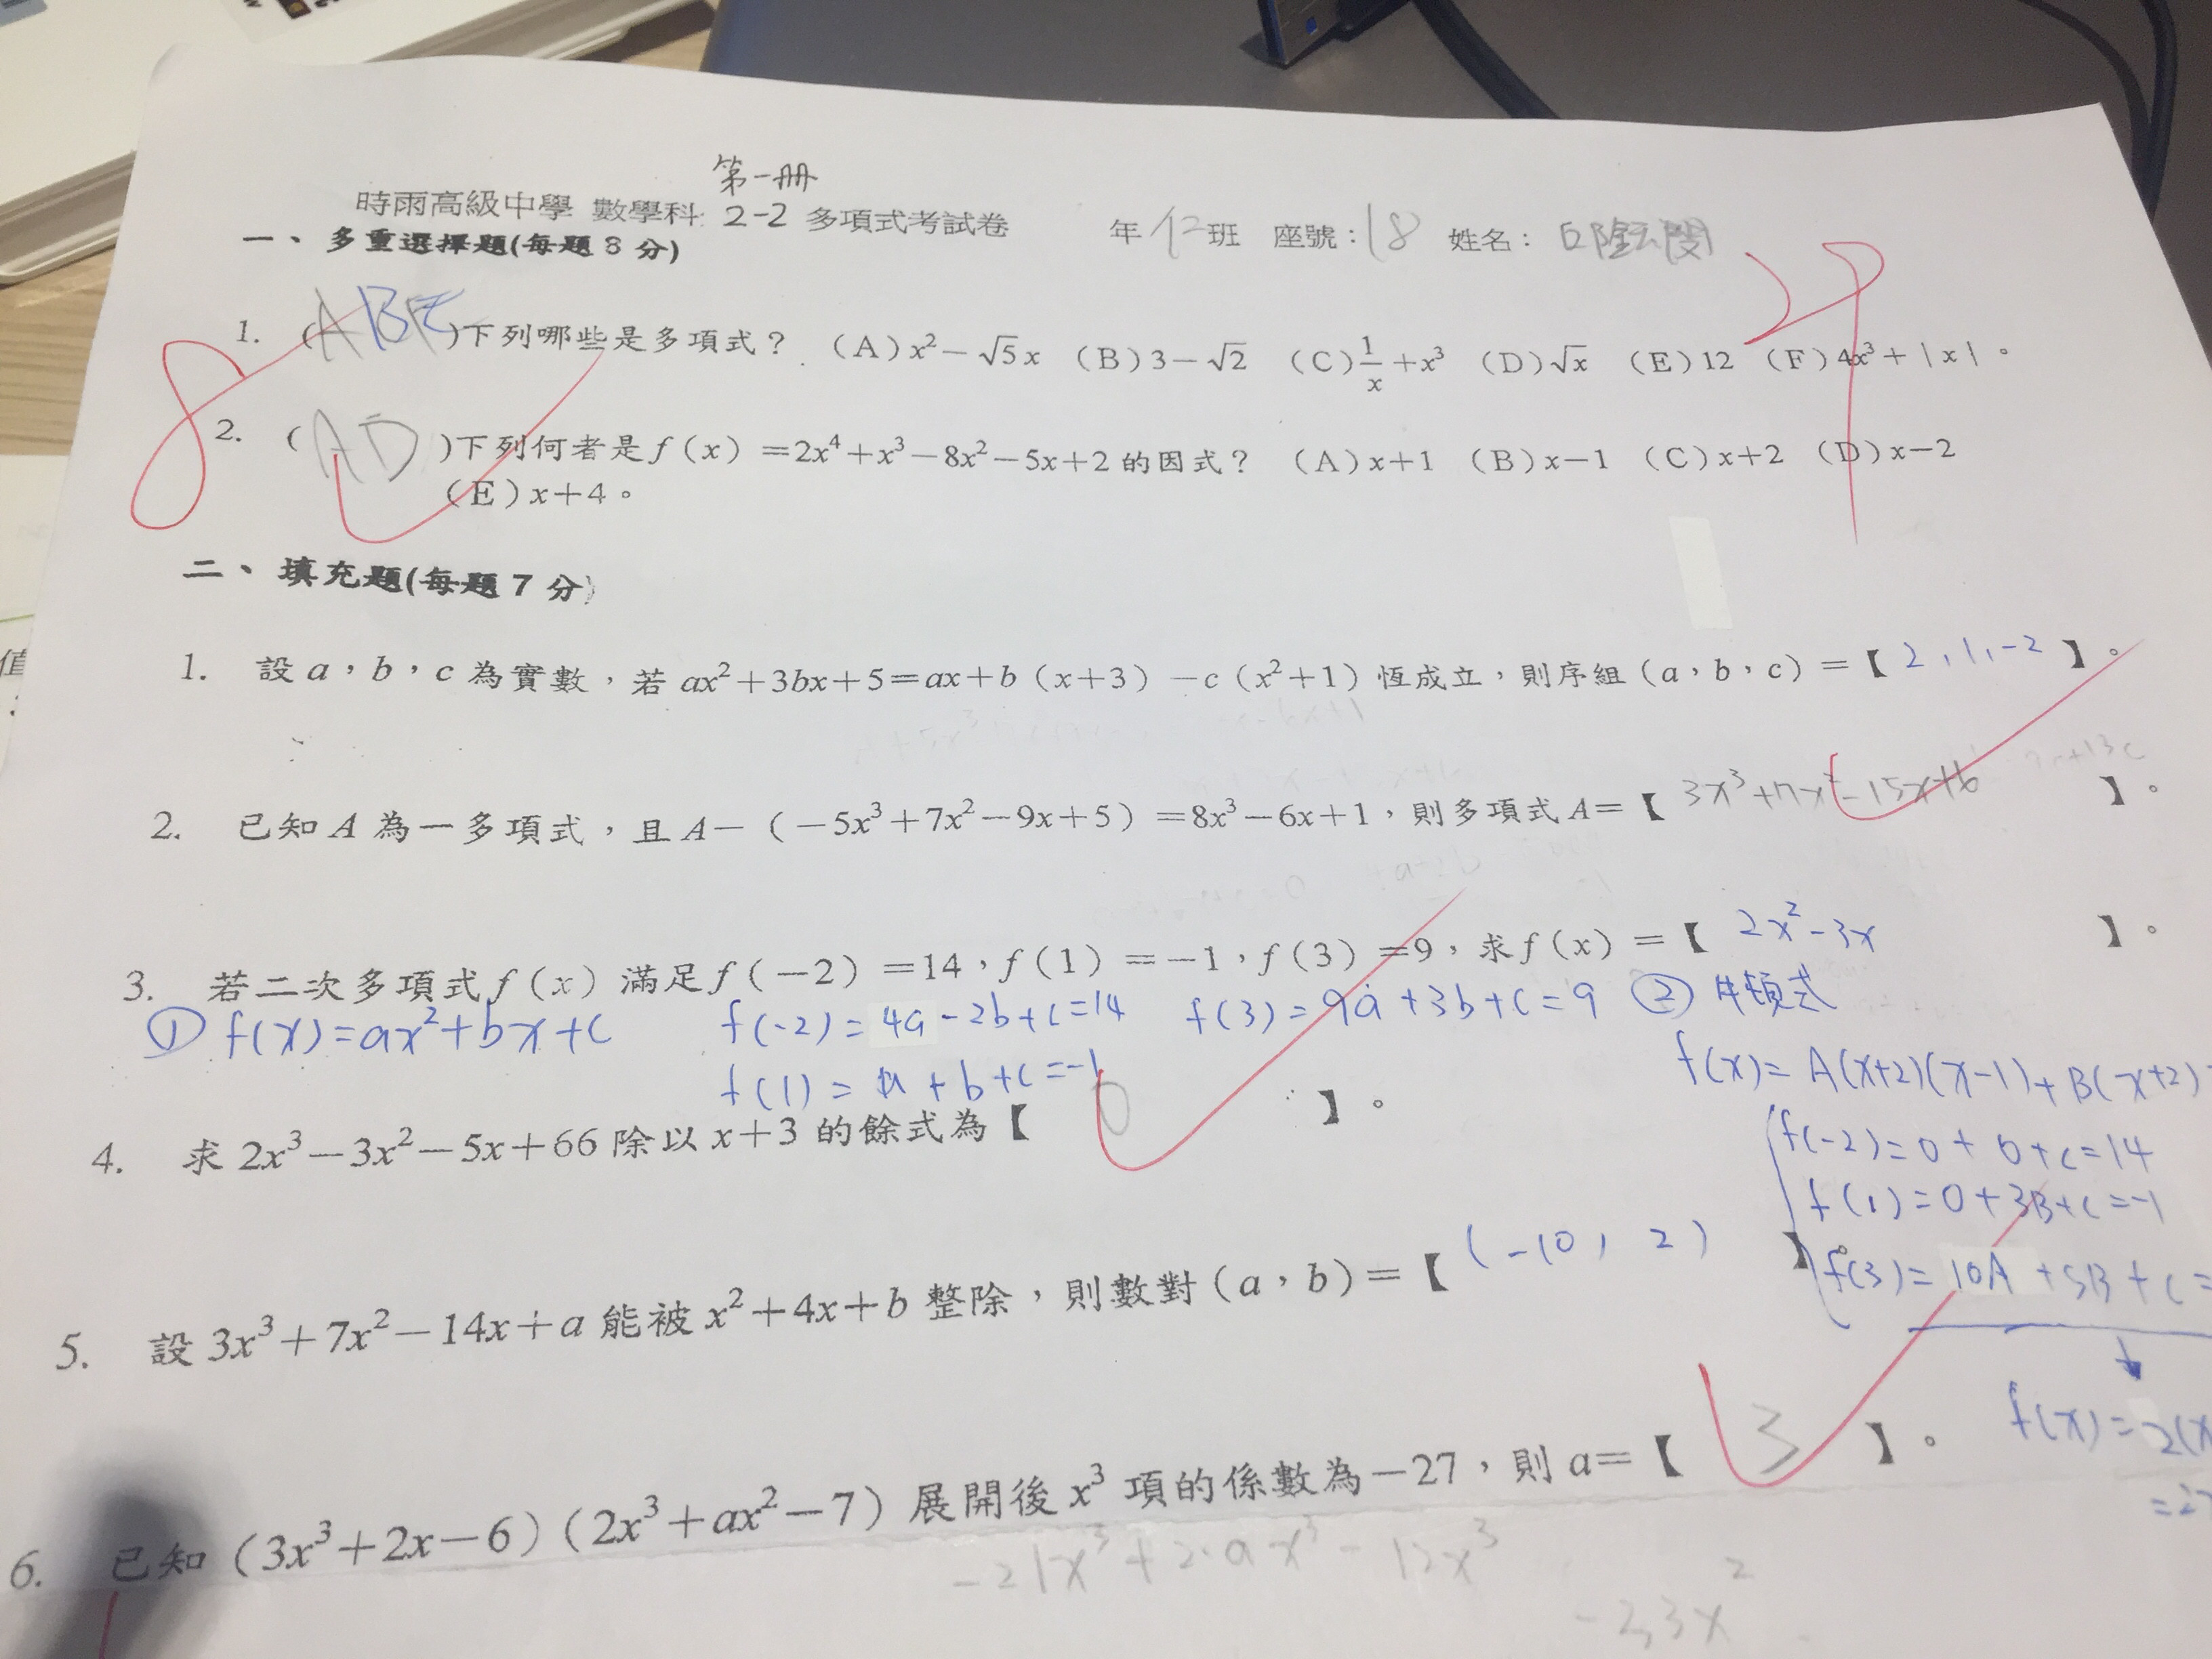 第一冊
時雨高級中學 數學科: 2-2 多項式考試卷 年 班 座號:18 姓名:
一、多重選擇題(每題8分)
1. (ABE)下列哪些是多項式? (A)x²-√5x (B)3-√2 (C)1/x+x³ (D)√x (E)12 (F)4x³+|x|。
8
2. (AD)下列何者是f(x)=2x⁴+x³-8x²-5x+2的因式? (A)x+1 (B)x-1 (C)x+2 (D)x-2
(E)x+4。
二、填充題(每題7分)
1. 設a,b,c為實數,若ax²+3bx+5=ax+b(x+3)-c(x²+1)恆成立,則序組(a,b,c)=【2,1,-2】。
2. 已知A為一多項式,且A-(-5x³+7x²-9x+5)=8x³-6x+1,則多項式A=【3x³+7x²-15x+6】。
3. 若二次多項式f(x)滿足f(-2)=14,f(1)=-1,f(3)=9,求f(x)=【2x²-3x】。
① f(x)=ax²+bx+c f(-2)=4a-2b+c=14 f(3)=9a+3b+c=9 ② 牛頓式
f(1)=a+b+c=-1 f(x)=A(x+2)(x-1)+B(x+2)
4. 求2x³-3x²-5x+66除以x+3的餘式為【0】。
f(-2)=0+0+c=14
f(1)=0+3B+c=-1
f(3)=10A+5B+c=
5. 設3x³+7x²-14x+a能被x²+4x+b整除,則數對(a,b)=【(-10,2)】。
f(x)=2(x
=2
6. 已知(3x³+2x-6)(2x³+ax²-7)展開後x³項的係數為-27,則a=【3】。
-21x³+2·ax³-12x³
-33x²